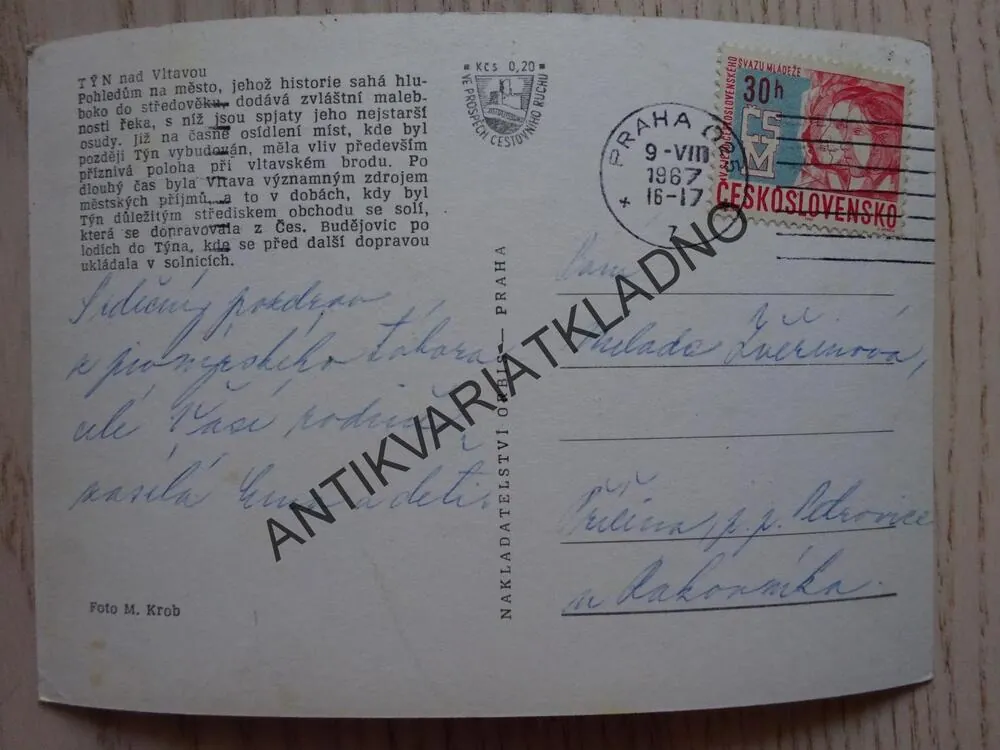 TÝN nad Vltavou
Pohledům na město, jehož historie sahá hlu-
boko do středověku, dodává zvláštní maleb-
nosti řeka, s níž jsou spjaty jeho nejstarší
osudy. Již na časné osídlení míst, kde byl
později Týn vybudován, měla vliv především
příznivá poloha při vltavském brodu. Po
dlouhý čas byla Vltava významným zdrojem
městských příjmů, a to v dobách, kdy byl
Týn důležitým střediskem obchodu se solí,
která se dopravovala z Čes. Budějovic po
lodích do Týna, kde se před další dopravou
ukládala v solnicích.
Srdečný pozdrav
z pionýrského tábora
celé Vaší rodině
zasílá a děti.
Foto M. Krob
Kčs 0,20
VE PROSPĚCH CESTOVNÍHO RUCHU
NAKLADATELSTVÍ ORBIS — PRAHA
PRAHA 025
9-VIII
1967
16-17
z
SJEZD ČESKOSLOVENSKÉHO SVAZU MLÁDEŽE
30h
ČSM
ČESKOSLOVENSKO
Paní
Milada Zvěřinová,
p. p. Petrovice
u Rakovníka.
ANTIKVARIATKLADNO